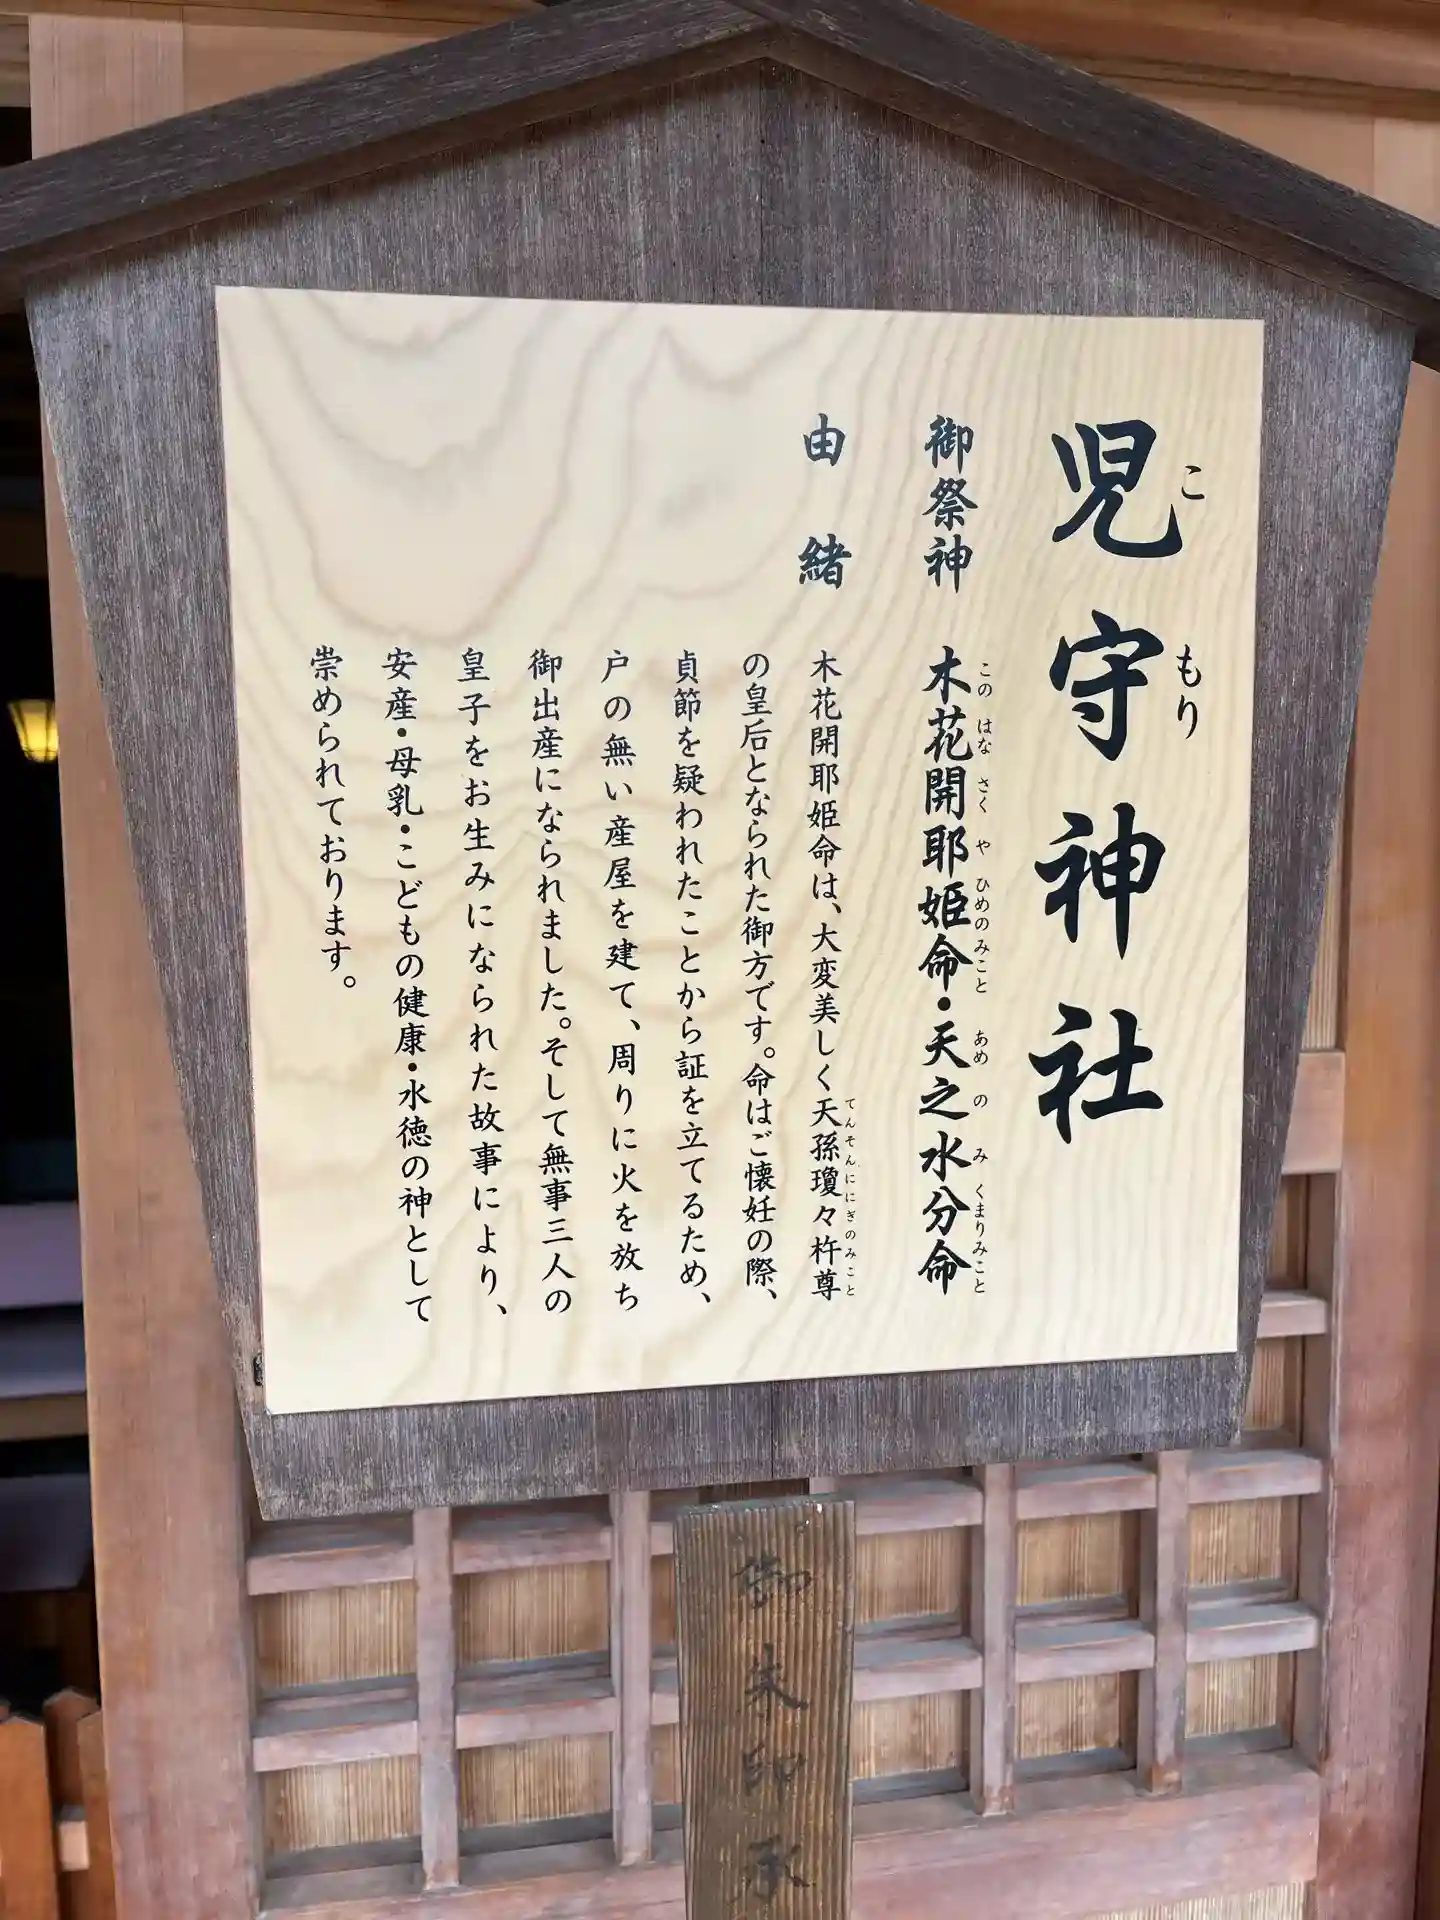 児守神社
こ もり
御祭神 木花開耶姫命・天之水分命
このはなさくやひめのみこと あめのみくまりみこと
由緒 木花開耶姫命は、大変美しく天孫瓊々杵尊
てんそんににぎのみこと
の皇后となられた御方です。命はご懐妊の際、
貞節を疑われたことから証を立てるため、
戸の無い産屋を建て、周りに火を放ち
御出産になられました。そして無事三人の
皇子をお生みになられた故事により、
安産・母乳・こどもの健康・水徳の神として
崇められております。
御朱印承